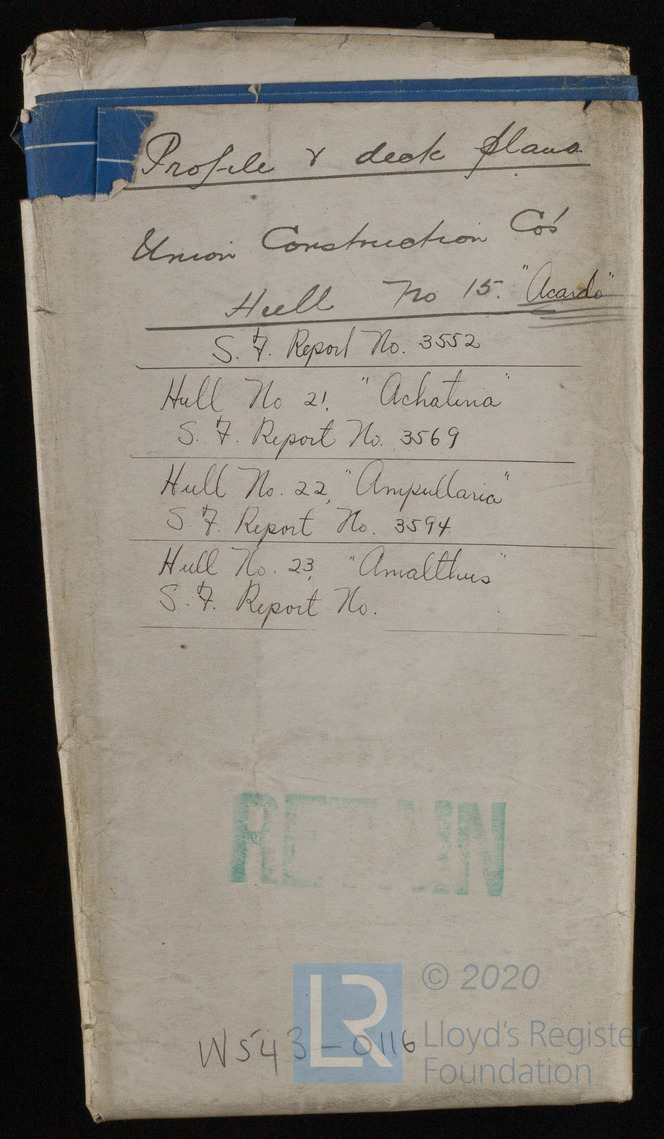 Profile & deck plans
Union Construction Co's
Hull No 15. "Acardo"
S. F. Report No. 3552
Hull No 21, "Achatina"
S. F. Report No. 3569
Hull No. 22, "Ampullaria"
S F. Report No. 3594
Hull No. 23, "Amalthus"
S. F. Report No.
RETAIN
LR
© 2020
Lloyd's Register
Foundation
W543-0116